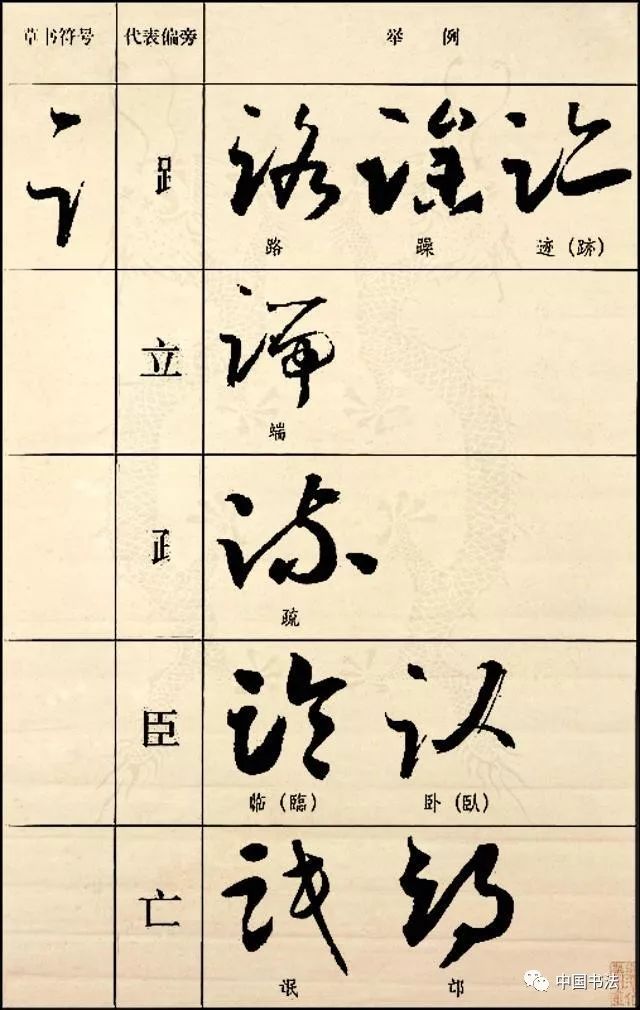 草书符号 代表偏旁 举例
讠 𧾷 路 躁 迹（跡）
立 端
𤴔 疏
臣 临（臨） 卧（臥）
亡 氓 邙
中国书法